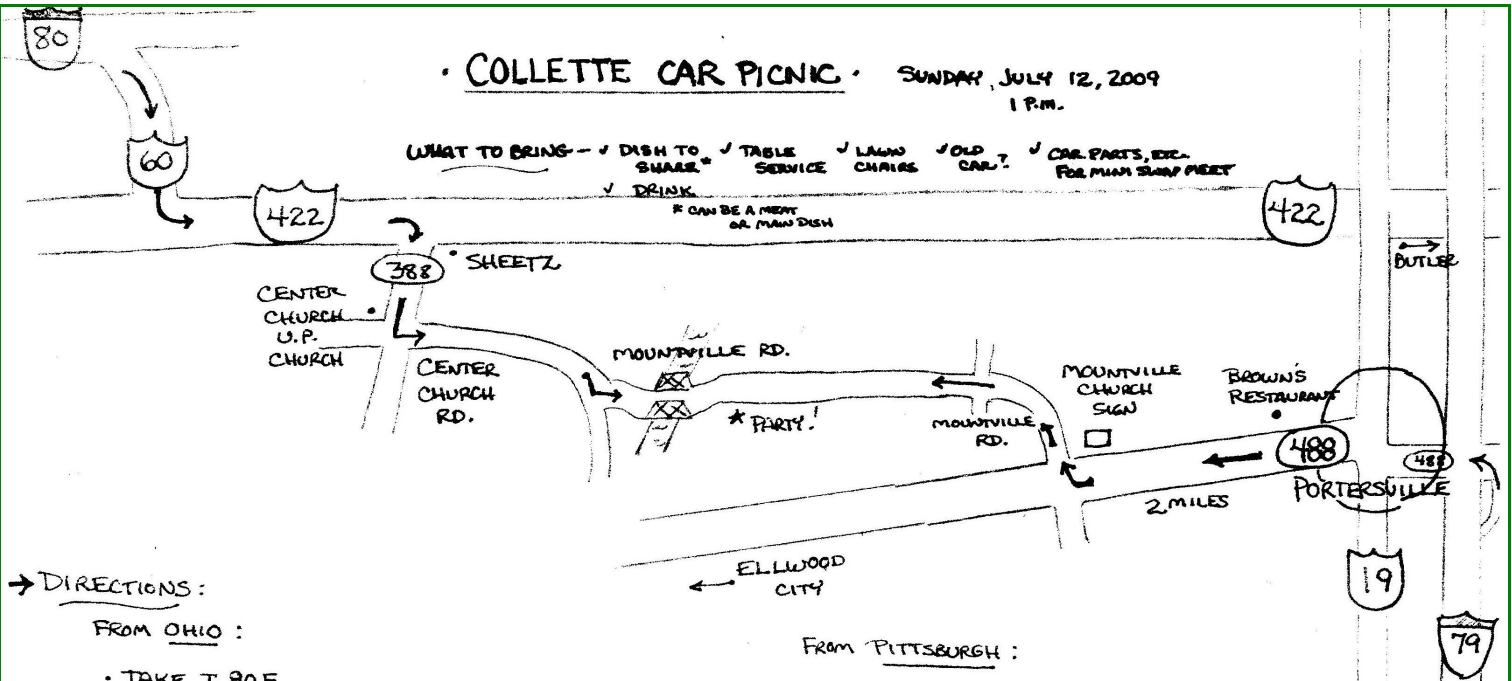 80
· COLLETTE CAR PICNIC · SUNDAY, JULY 12, 2009
1 P.M.
60
WHAT TO BRING - ✓ DISH TO SHARE* ✓ TABLE SERVICE ✓ LAWN CHAIRS ✓ OLD CAR? ✓ CAR PARTS, ETC. FOR MINI SWAP MEET
✓ DRINK
* CAN BE A MEAT
OR MAIN DISH
422
422
388
• SHEETZ
BUTLER
CENTER
CHURCH
U.P.
CHURCH
CENTER
CHURCH
RD.
MOUNTVILLE RD.
* PARTY!
MOUNTVILLE
RD.
MOUNTVILLE
CHURCH
SIGN
BROWN'S
RESTAURANT
488
488
PORTERSVILLE
2 MILES
ELLWOOD
CITY
19
79
→ DIRECTIONS:
FROM OHIO:
• TAKE I 80 E
FROM PITTSBURGH: